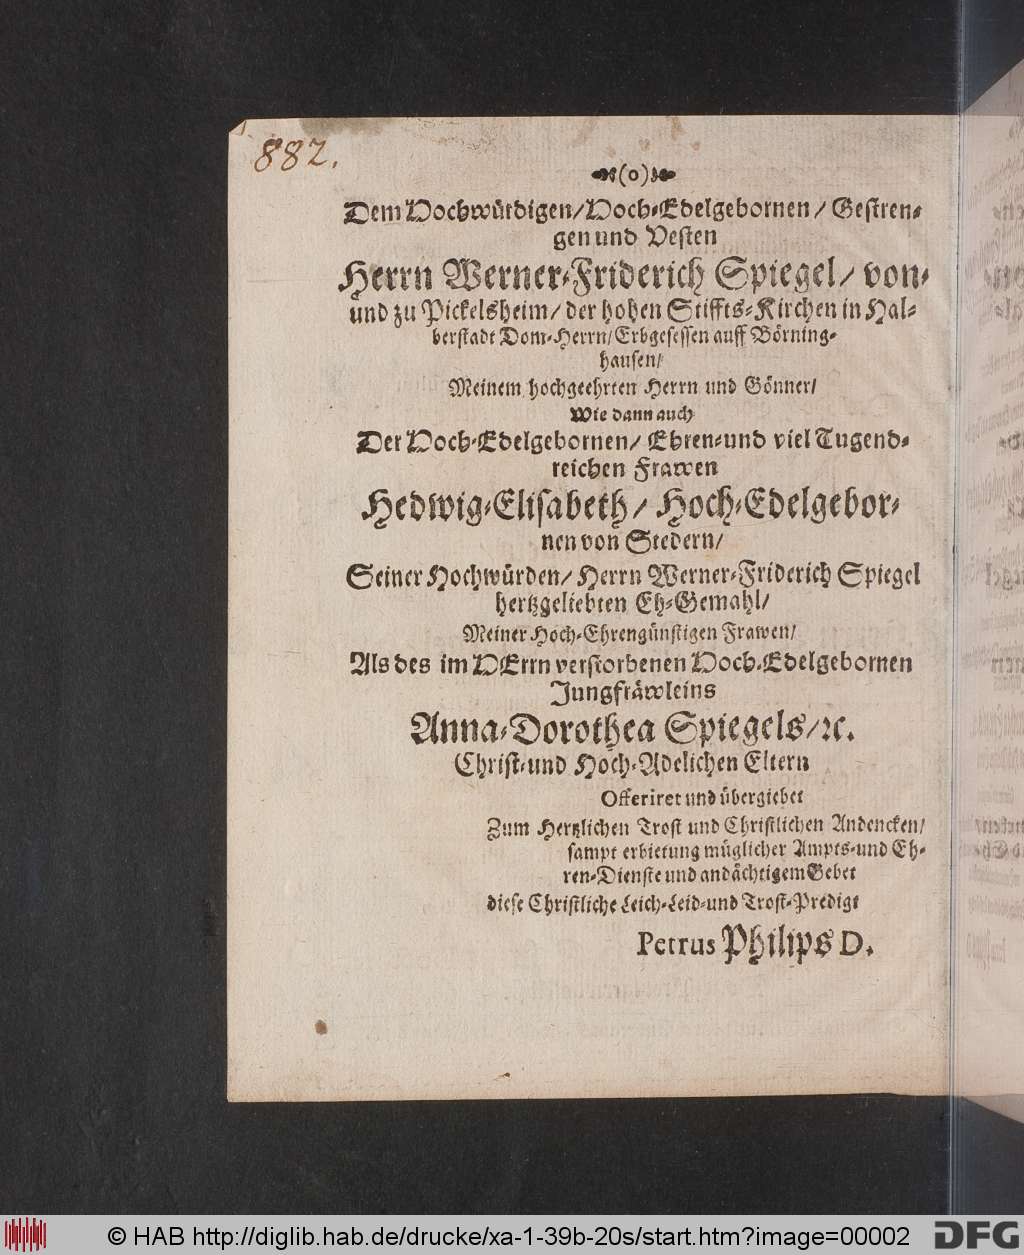 882.
(o)
Dem Hochwürdigen/Hoch-Edelgebornen/ Gestren-
gen und Vesten
Herrn Werner-Friderich Spiegel/ von-
und zu Pickelsheim/ der hohen Stiffts-Kirchen in Hal-
berstadt Dom-Herrn/Erbgesessen auff Börning-
hausen/
Meinem hochgeehrten Herrn und Gönner/
Wie dann auch
Der Hoch-Edelgebornen/ Ehren-und viel Tugend-
reichen Frawen
Hedwig-Elisabeth/ Hoch-Edelgebor-
nen von Stedern/
Seiner Hochwürden/ Herrn Werner-Friderich Spiegel
hertzgeliebten Eh-Gemahl/
Meiner Hoch-Ehrengünstigen Frawen/
Als des im HErrn verstorbenen Hoch-Edelgebornen
Jungfräwleins
Anna-Dorothea Spiegels/ꝛc.
Christ-und Hoch-Adelichen Eltern
Offeriret und übergiebet
Zum Hertzlichen Trost und Christlichen Andencken/
sampt erbietung müglicher Ampts-und Eh-
ren-Dienste und andächtigem Gebet
diese Christliche Leich-Leid-und Trost-Predigt
Petrus Philips D.
© HAB http://diglib.hab.de/drucke/xa-1-39b-20s/start.htm?image=00002
DFG